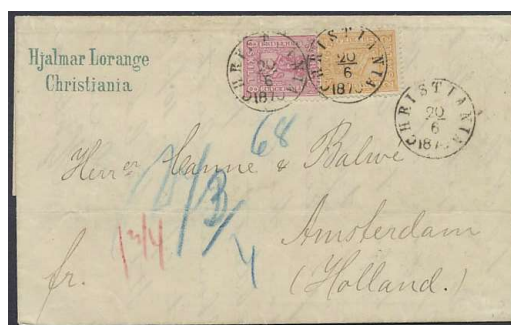 Hjalmar Lorange
Christiania
CHRISTIANIA
20
6
1870
CHRISTIANIA
20
6
1870
CHRISTIANIA
20
6
187
68
Herrer Hanne & Balwé
1/3/4
Amsterdam
fr.
(Holland.)